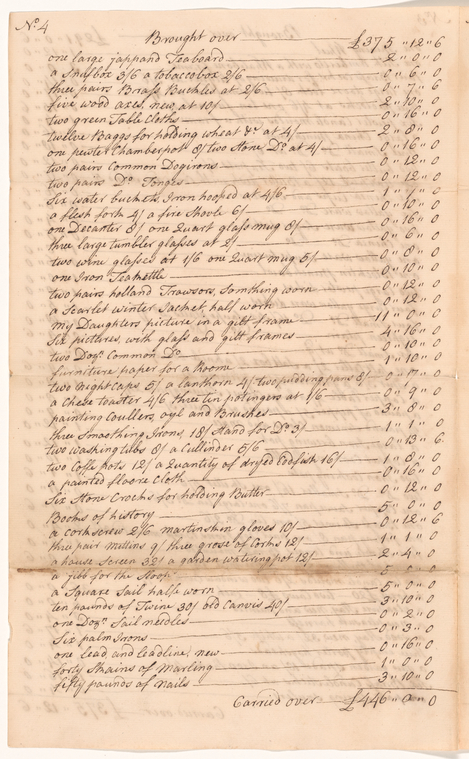 No. 4
Brought over £375 " 12 " 6
one large jappand Teaboard 2 " 0 " 0
a snufbox 3/6 a tobaccobox 2/6 0 " 6 " 0
three pairs Brass Buckles at 2/6 0 " 7 " 6
five wood axes, new at 10/ 2 " 10 " 0
two green Table Cloths 0 " 16 " 0
twelve Baggs for holding wheat &c at 4/ 2 " 8 " 0
one pewter Chamberpot 8/ two Stone Do at 4/ 0 " 16 " 0
two pairs Common Dogirons 0 " 12 " 0
two pairs Do Tonges 0 " 12 " 0
Six water buckets Iron hooped at 4/6 1 " 7 " 0
a flesh fork 4/ a fire Shovle 6/ 0 " 10 " 0
one Decanter 8/ one Quart glass mug 8/ 0 " 16 " 0
three large tumbler glasses at 2/ 0 " 6 " 0
two wine glasses at 1/6 one Quart mug 5/ 0 " 8 " 0
one Iron Teakettle 0 " 10 " 0
two pairs holland Trawsors, Somthing worn 0 " 12 " 0
a Scarlet winter Jacket, half worn 0 " 12 " 0
my Daughters picture in a gilt frame 11 " 0 " 0
Six pictures, with glass and gilt frames 4 " 16 " 0
two Dozn Common Do 0 " 10 " 0
furniture paper for a Roome 1 " 10 " 0
two nightcaps 5/ a lanthorn 4/ two pudding pans 8/ 0 " 17 " 0
a Chese toaster 4/6 three tin potingers at 1/6 0 " 9 " 0
painting Coullers, oyl and Brushes 3 " 8 " 0
three Smoothing Irons, 18/ Stand for Do 3/ 1 " 1 " 0
two washing tubs 8/ a Cullinder 5/6 0 " 13 " 6
two Coffe pots 12/ a Quantity of dryed Codfish 16/ 1 " 8 " 0
a painted floore Cloth 0 " 16 " 0
Six Stone Crocks for holding Butter 0 " 12 " 0
Books of history 5 " 0 " 0
a corkscrew 2/6 martinskin gloves 10/ 0 " 12 " 6
three pair Mittins 9/ three grose of Corks 12/ 1 " 1 " 0
a house Screen 32/ a garden watiring pot 12/ 2 " 4 " 0
a jibb for the Sloop
a Square Sail halfe worn 5 " 0 " 0
ten pounds of Twine 30/ old Canvis 40/ 3 " 10 " 0
one Dozn Sail needles 0 " 2 " 0
Six palm Irons 0 " 3 " 0
one lead and leadline, new 0 " 16 " 0
forty Skains of Marling 1 " 0 " 0
fifty pounds of nails 3 " 10 " 0
Carried over £446 " 0 " 0